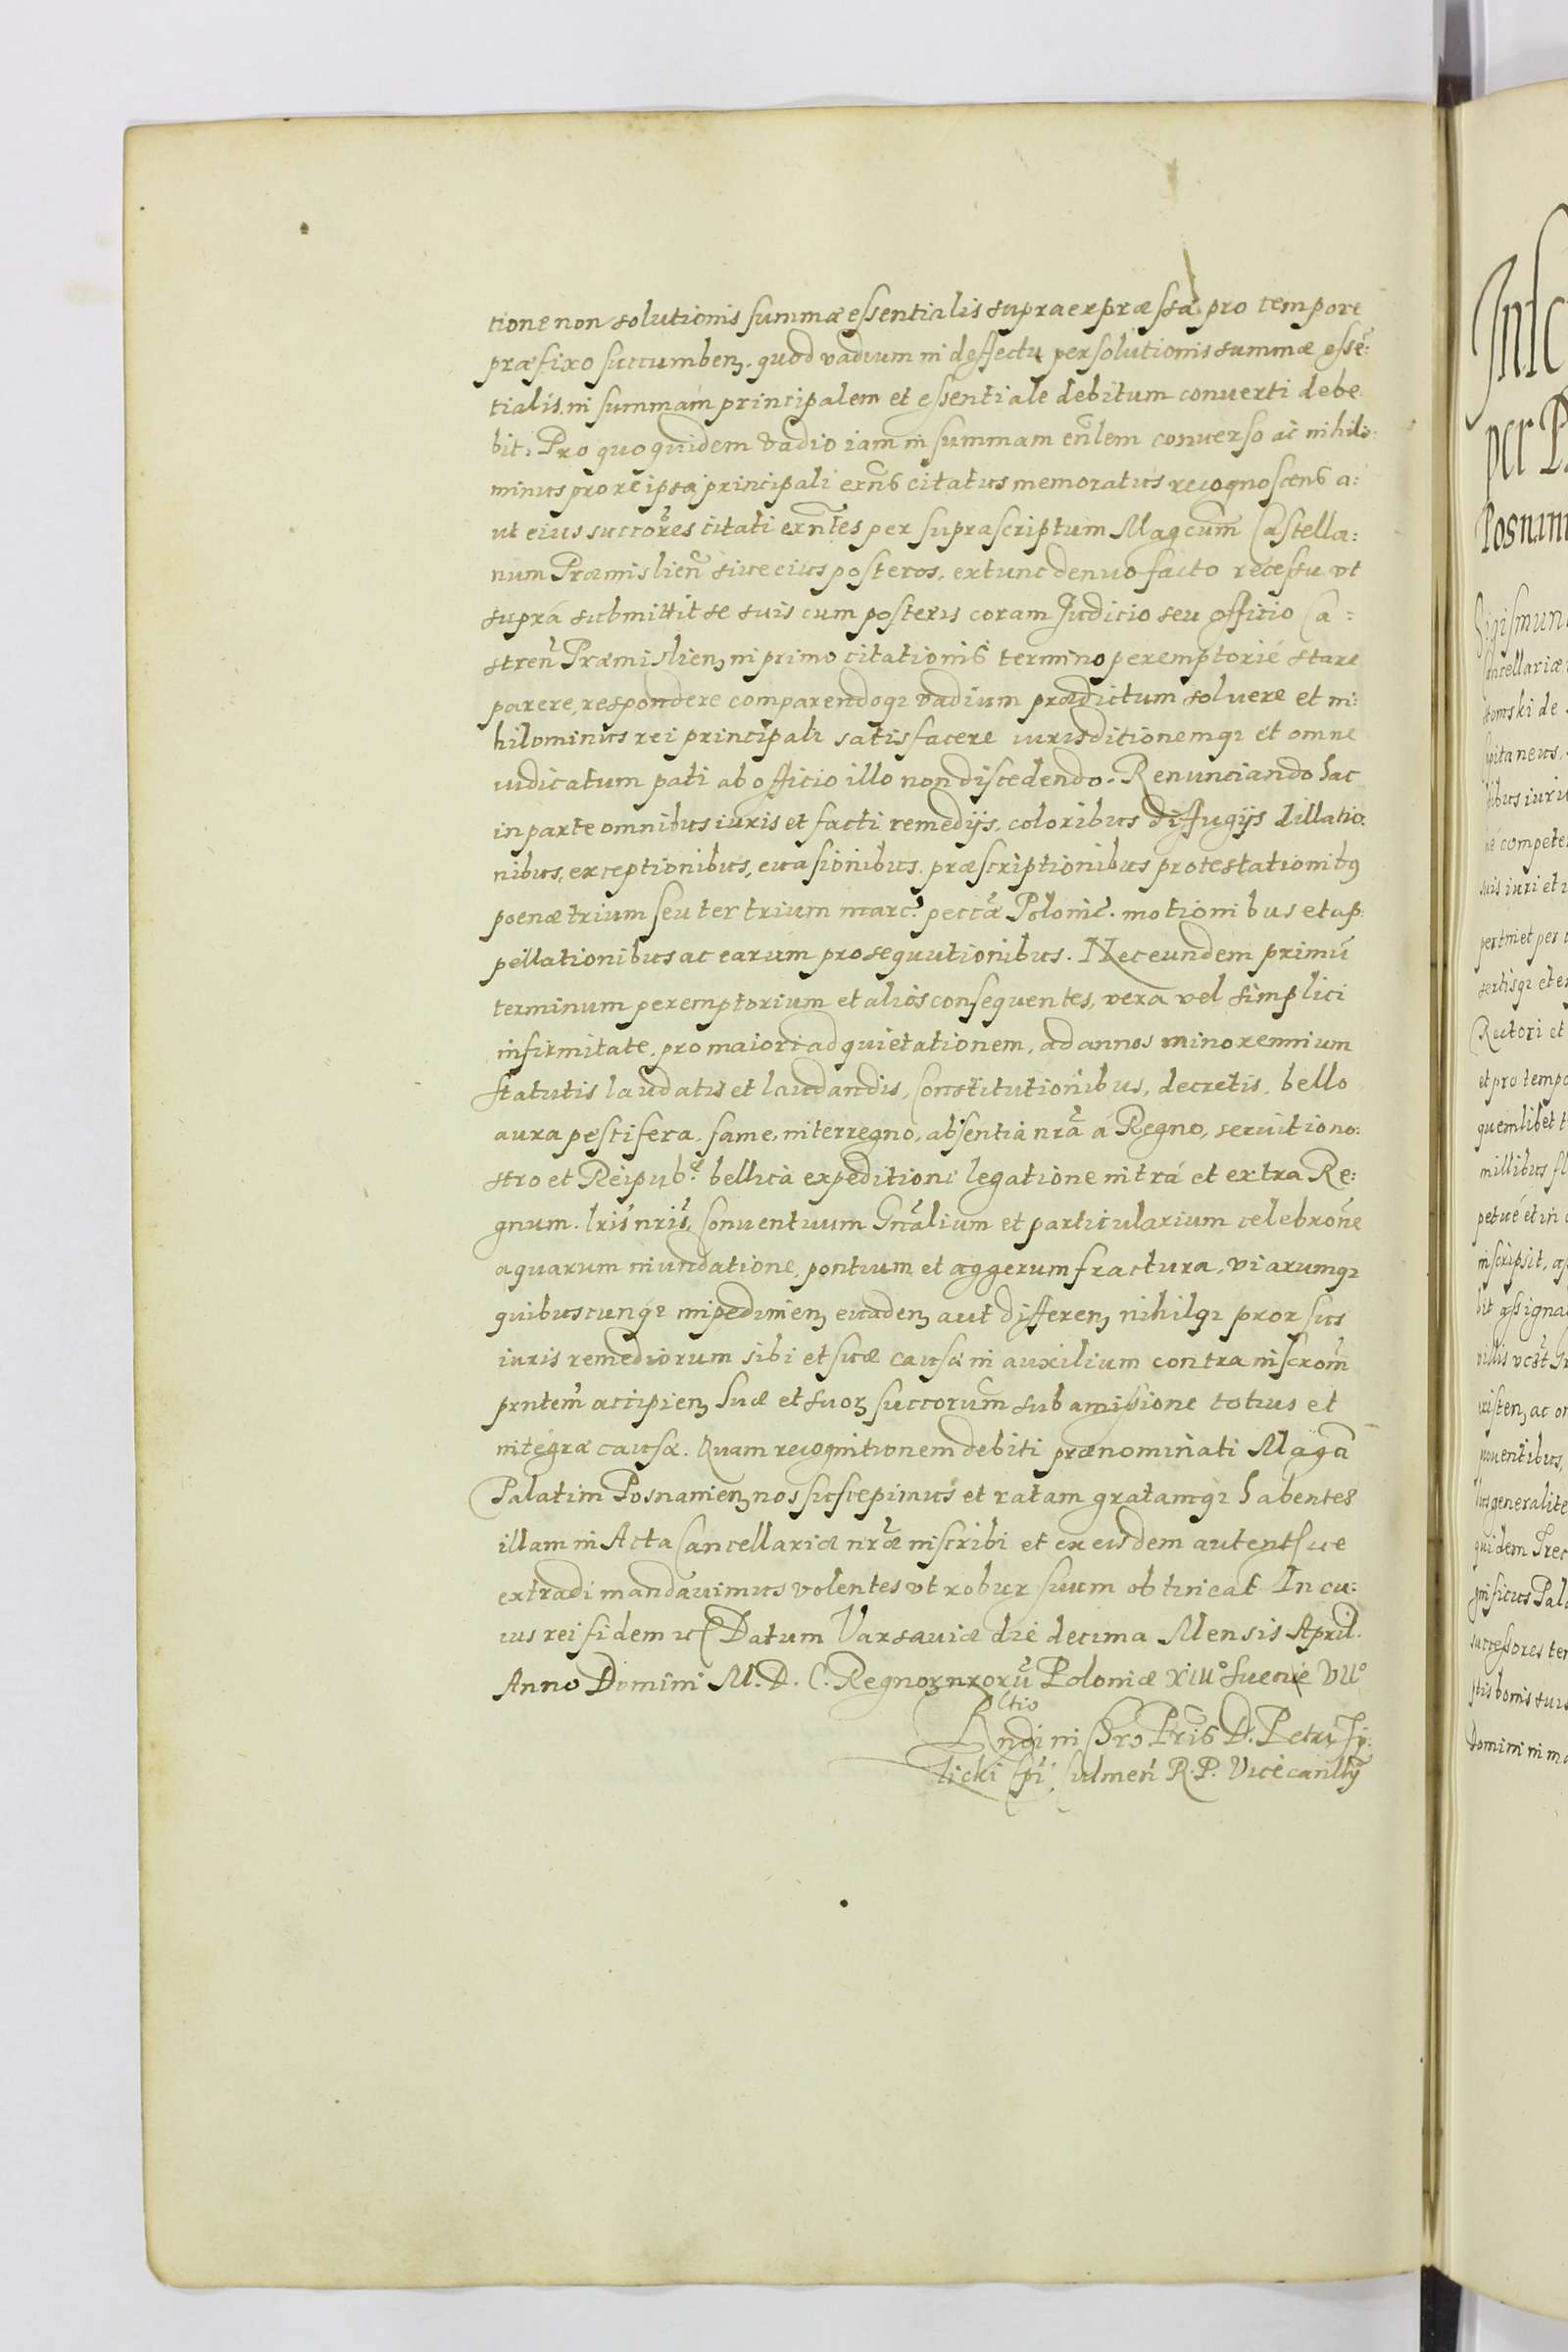 tione non solutionis summæ essentialis supra expræssæ pro tempore
præfixo succumben. quod vadium in deffectu persolutionis summæ essē:
tialis in summam principalem et essentiale debitum conuerti debe
bit. Pro quo quidem vadio iam in summam eñlem conuerso ac nihilo:
minus pro re ipsa principali exñs citatus memoratus recognoscens a:
ut eius succores citati exñtes per suprascriptum Magcum Castella:
num Præmislieñ siue eius posteros, extunc denuo facto recessu vt
supra submittit se suis cum posteris coram Judicio seu officio Ca:
streñ Præmislien in primo citationis termino peremptorié stare
parere, respondere comparendoq; vadium prædictum soluere et ni:
hilominus rei principali satisfacere iurisditionemq; et omne
iudicatum pati ab officio illo non discedendo. Renunciando hac
in parte omnibus iuris et facti remedijs, coloribus diffugijs dillatio:
nibus, exceptionibus, euasionibus, præscriptionibus protestationibus
poenæ trium seu ter trium marc. peccæ Polonic. motionibus et ap:
pellationibus ac earum prosequutionibus. Nec eundem primū
terminum peremptorium et alios consequentes, vera vel simplici
infirmitate, pro maiori ad quietationem, ad annos minorennium
statutis laudatis et laudandis, Constitutionibus, decretis, bello
aura pestifera, fame, interregno, absentia nrã á Regno, seruitio no:
stro et Reipub. bellica expeditione legatione intrá et extra Re:
gnum. lris nris, Conuentuum Gnãlium et particularium celebrõne
aquarum inundatione, pontium et aggerum fractura, viarumq;
quibuscunq; impedimen euaden aut differen nihilq; prorsus
iuris remediorum sibi et suæ causæ in auxilium contra inscrom
prntem accipien suæ et suoꝝ succorum sub amissione totius et
integræ causæ. Quam recognitionem debiti prænominati Magci
Palatini Posnanien nos suscepimus et ratam gratamq; habentes
illam in Acta Cancellariæ nræ inscribi et ex eisdem autent sue
extradi mandauimus volentes vt robur suum obtineat In cu:
ius rei fidem etc Datum Varsauiæ die decima Mensis April.
Anno Domini M.D.C. Regnoꝝ nrorū Poloniæ XIII° Sueciæ VII°
Rltio
Rndi in Chro Pris D. Petri Ty:
licki Epi Culmeñ R.P. Vicecanllrij